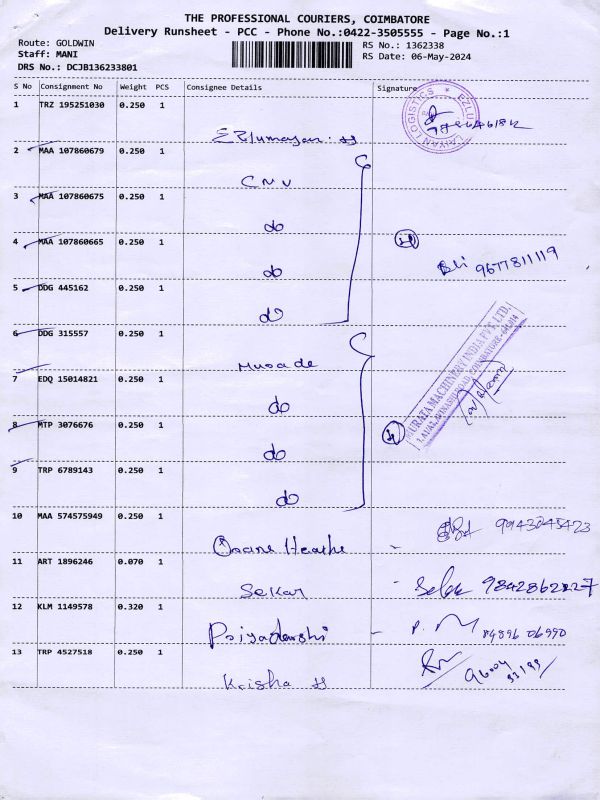 THE PROFESSIONAL COURIERS, COIMBATORE
Delivery Runsheet - PCC - Phone No.:0422-3505555 - Page No.:1
Route: GOLDWIN
Staff: MANI
DRS No.: DCJB136233801
RS No.: 1362338
RS Date: 06-May-2024
S No Consignment No Weight PCS Consignee Details Signature
1 TRZ 195251030 0.250 1
LOGISTICS
2 MAA 107860679 0.250 1 CMV
3 MAA 107860675 0.250 1 do
4 MAA 107860665 0.250 1 do
9677811119
5 DDG 445162 0.250 1 do
6 DDG 315557 0.250 1 Murade
7 EDQ 15014821 0.250 1 do
MURATA MACHINERY INDIA PVT. LTD.
8 MTP 3076676 0.250 1 do
9 TRP 6789143 0.250 1 do
10 MAA 574575949 0.250 1
11 ART 1896246 0.070 1 Sekar
12 KLM 1149578 0.320 1 Priyadarshi
P. M
13 TRP 4527518 0.250 1 Krisha